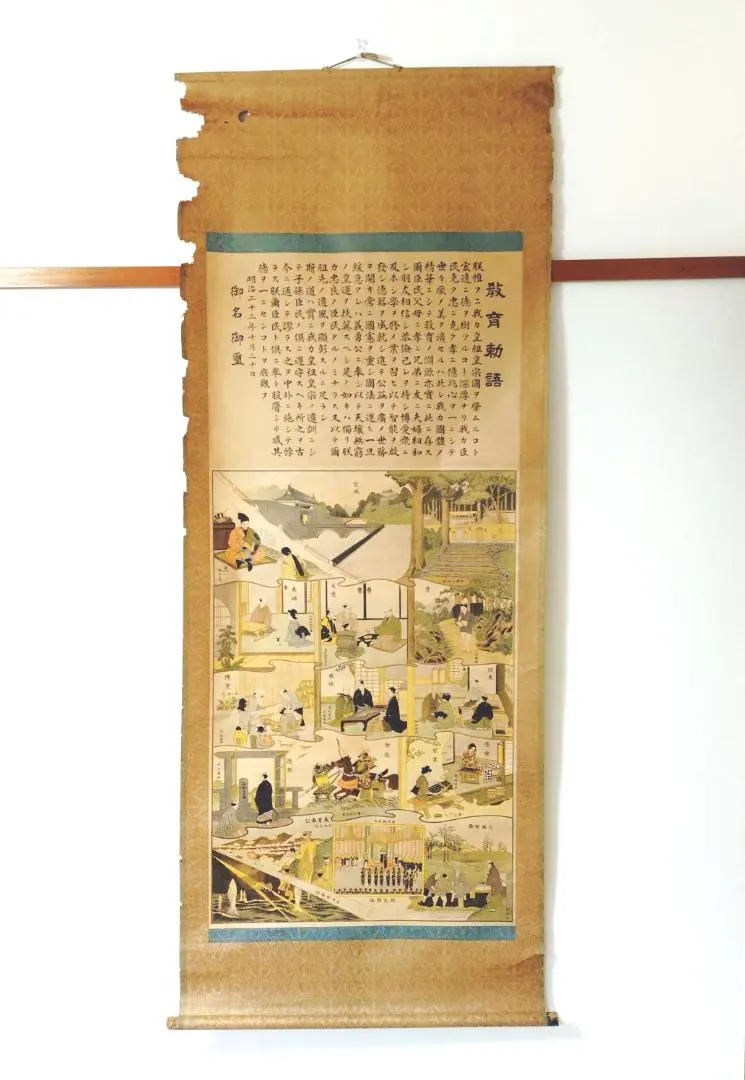 教育勅語
朕惟フニ我カ皇祖皇宗國ヲ肇ムルコト
宏遠ニ德ヲ樹ツルコト深厚ナリ我カ臣
民克ク忠ニ克ク孝ニ億兆心ヲ一ニシテ
世々厥ノ美ヲ濟セルハ此レ我カ國體ノ
精華ニシテ教育ノ淵源亦實ニ此ニ存ス
爾臣民父母ニ孝ニ兄弟ニ友ニ夫婦相和
シ朋友相信シ恭儉己レヲ持シ博愛衆ニ
及ホシ學ヲ修メ業ヲ習ヒ以テ智能ヲ啟
發シ德器ヲ成就シ進テ公益ヲ廣メ世務
ヲ開キ常ニ國憲ヲ重シ國法ニ遵ヒ一旦
緩急アレハ義勇公ニ奉シ以テ天壤無窮
ノ皇運ヲ扶翼スヘシ是ノ如キハ獨リ朕
カ忠良ノ臣民タルノミナラス又以テ爾
祖先ノ遺風ヲ顯彰スルニ足ラン
斯ノ道ハ實ニ我カ皇祖皇宗ノ遺訓ニシ
テ子孫臣民ノ俱ニ遵守スヘキ所之ヲ古
今ニ通シテ謬ラス之ヲ中外ニ施シテ悖
ラス朕爾臣民ト俱ニ拳々服膺シテ咸其
德ヲ一ニセンコトヲ庶幾フ
明治二十三年十月三十日
御名御璽
宮城
夫婦
智能
義勇奉公